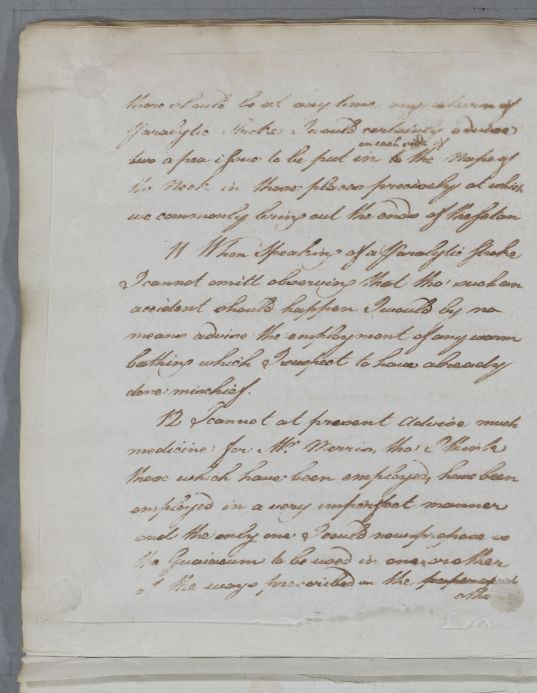 there should be at any time any return of
Paralytic Stroke I would certainly advise
on each side of
two a pea issue to be put in to the Nape of
the Neck in those places precisely at which
we commonly bring out the ends of the Seton
11 When Speaking of a Paralytic Stroke
I cannot omitt observing that tho' such an
accident should happen I would by no
means advise the employment of any warm
bathing which I suspect to have already
done mischief.
12 I cannot at present advise much
medicine for Mr. Morris, tho' I think
those which have been employed, have been
employed in a very imperfect manner
and the only one I would now propose is
the Guaiacum to be used in one or other
of the ways prescribed on the paper
othe